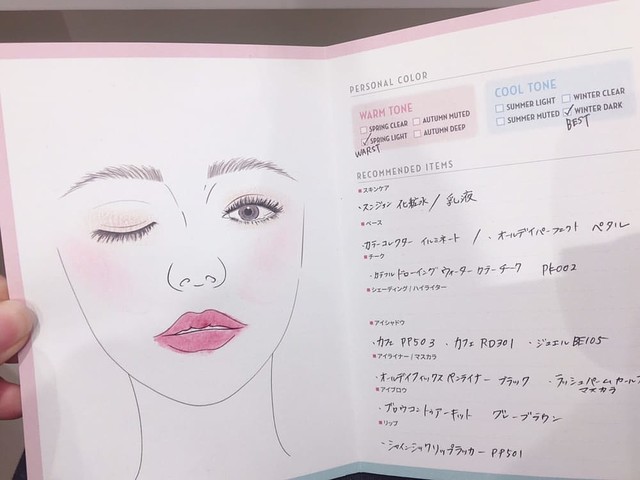 PERSONAL COLOR
WARM TONE
SPRING CLEAR AUTUMN MUTED
SPRING LIGHT AUTUMN DEEP
WARST
COOL TONE
SUMMER LIGHT WINTER CLEAR
SUMMER MUTED WINTER DARK
BEST
RECOMMENDED ITEMS
スキンケア
・スンジョン 化粧水 / 乳液
ベース
・カラーコレクター イルミネート / ・オールデイパーフェクト ペタル
チーク
・カラフルドローイング ウォーターカラーチーク PK002
シェーディング / ハイライター
アイシャドウ
・カフェ PP503 ・カフェ RD301 ・ジュエル BE105
アイライナー / マスカラ
・オールデイフィックス ペンライナー ブラック ・ラッシュパームカール
マスカラ
アイブロウ
・ブロウコントゥアーキット グレーブラウン
リップ
・シャインシックリップラッカー PP501